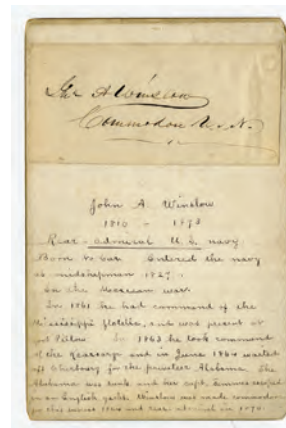 Jno A Winslow
Commodore U.S.N.
John A. Winslow
1810 - 1873
Rear-admiral U.S. navy
Born No Car. Entered the navy
as midshipman 1827.
In the Mexican war.
In 1861 he had command of the
Mississippi flotilla, and was present at
Fort Pillow. In 1863 he took command
of the Kearsarge and in June 1864 waited
off Cherbourg for the privateer Alabama. The
Alabama was sunk and her capt. Semmes escaped
in an English yacht. Winslow was made commodore
for this service 1864 and rear-admiral in 1870.